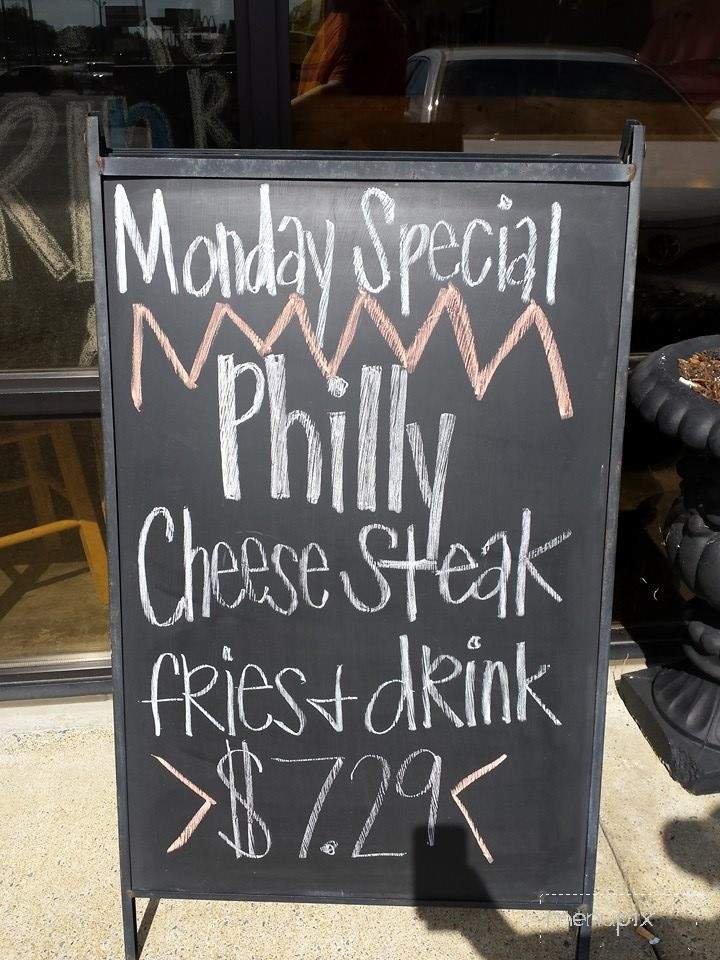 Monday Special
Philly
Cheese Steak
fRies + dRink
> $7.29 <
menupix